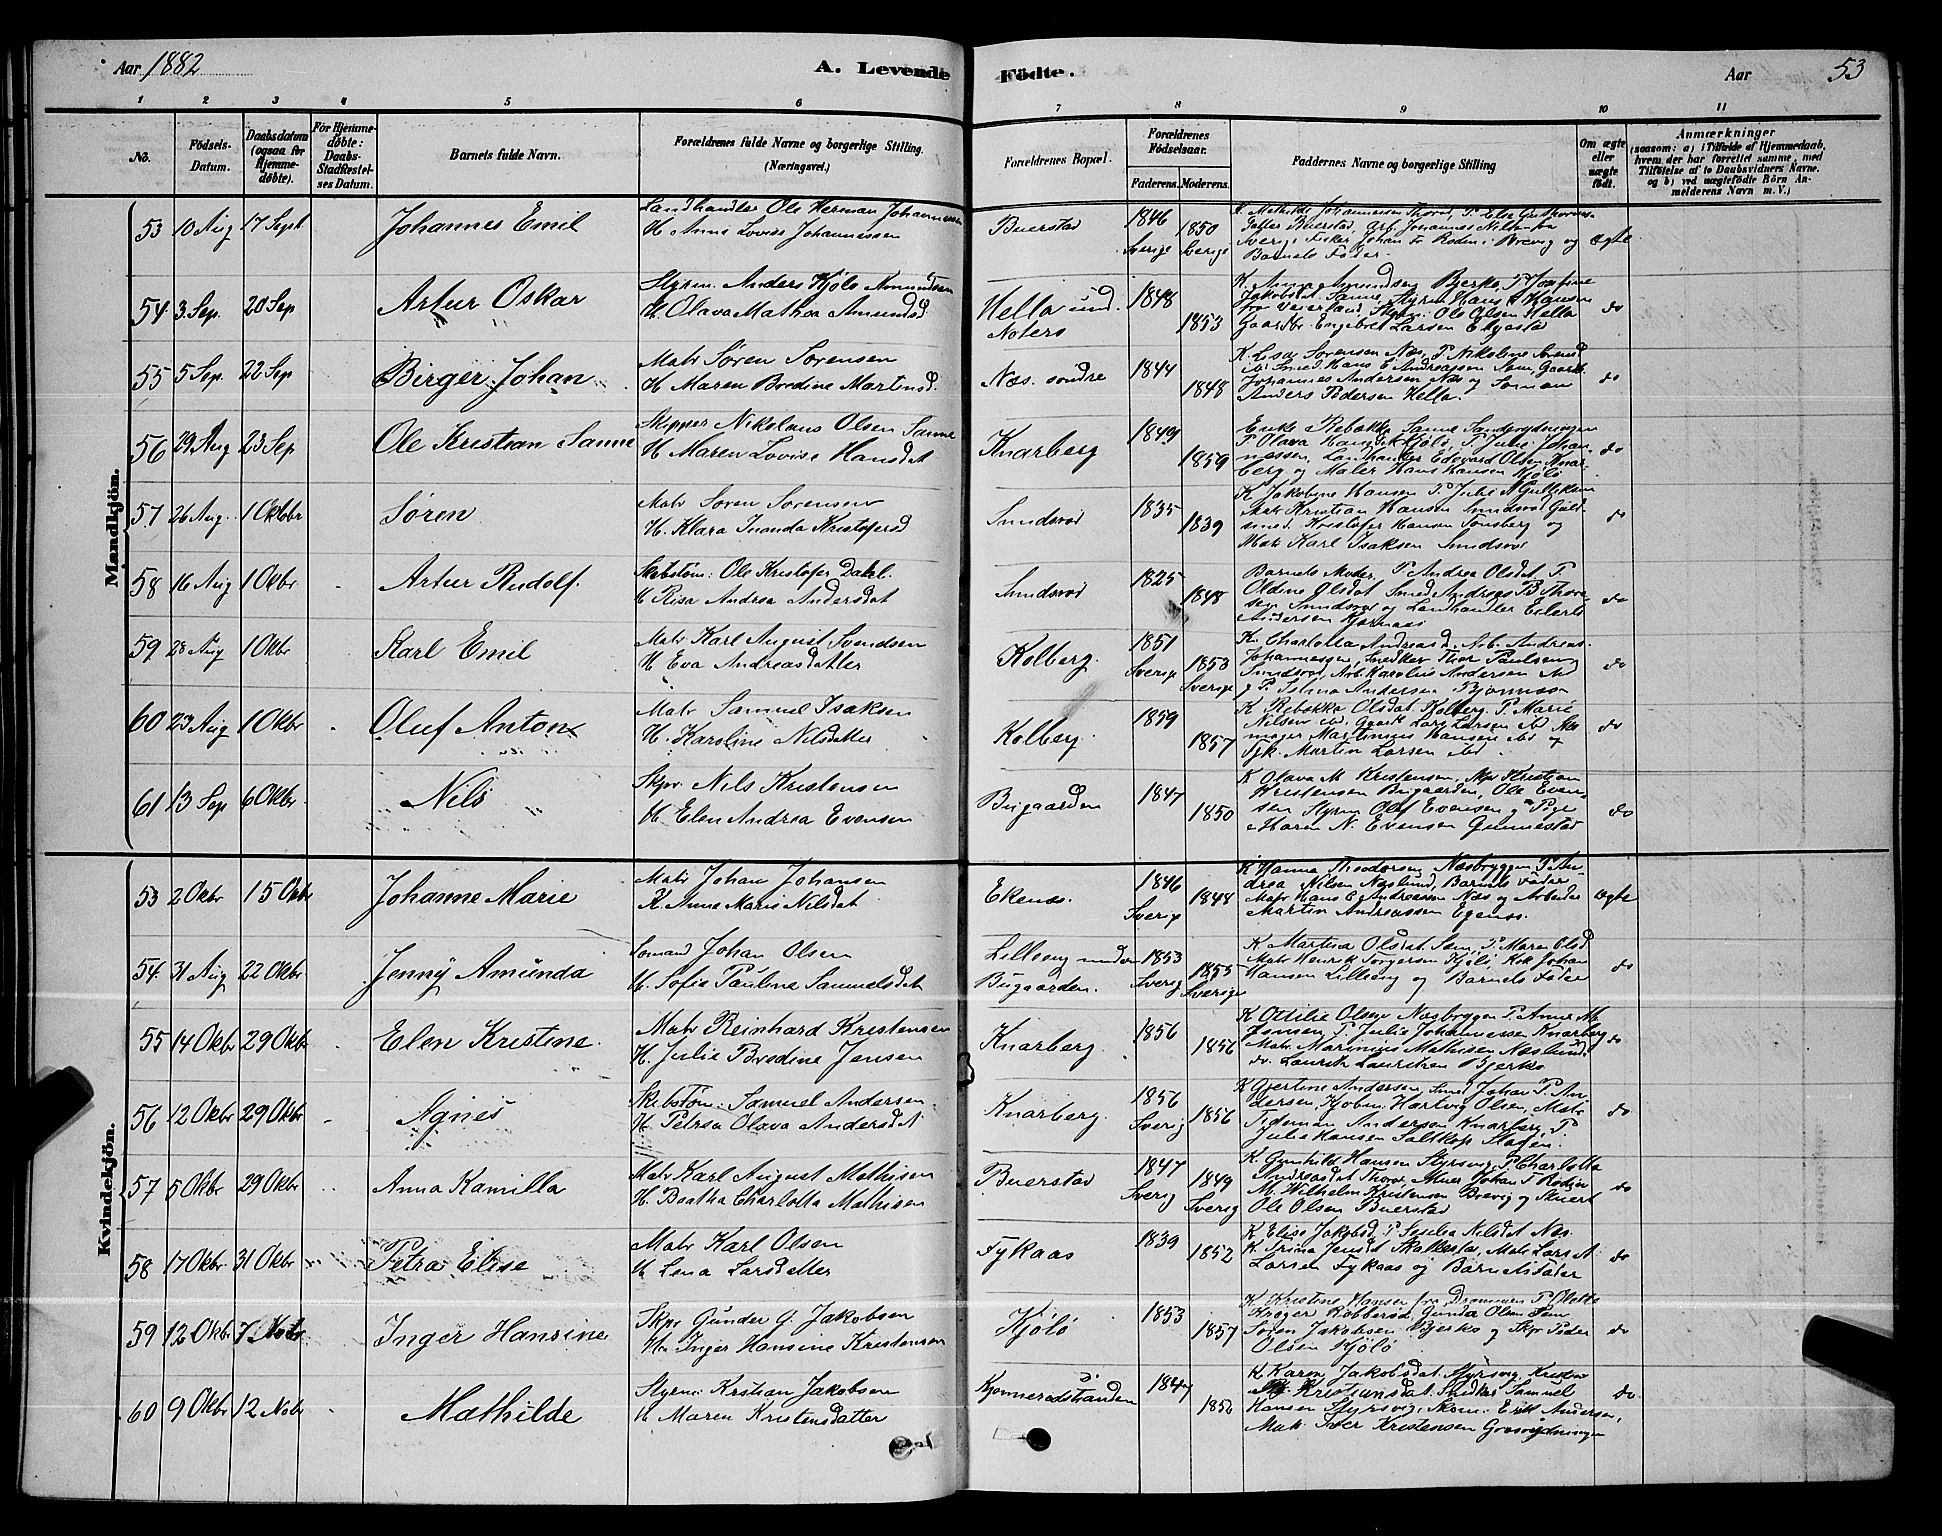 Aar 1882 A. Levende Födte. Aar 53
1 2 3 4 5 6 7 8 9 10 11
No.
Födsels-Datum.
Daabsdatum (ogsaa for Hjemme-döbte).
För Hjemme-döbte: Daabs-Stadfæstel-ses Datum.
Barnets fulde Navn.
Forældrenes fulde Navne og borgerlige Stilling. (Næringsvei.)
Forældrenes Bopæl.
Forældrenes Födselsaar.
Faderens. Moderens.
Faddernes Navne og borgerlige Stilling
Om ægte eller uægte födt.
Anmærkninger
(saasom: a) i Tilfælde af Hjemmedaab, hvem der har forrettet samme, med Tilföielse af to Daabsvidners Navne. og b) ved uægtefödte Börn An-melderens Navn m. V.)
Mandkjön.
53 10 Aug 17 Sept Johannes Emil
Landhandler Ole Herman Johannessen
H. Anne Lovise Johannessen
Buerstad 1846 Sverige 1850 Sverige
K. Mathilde Johannessen Thorød, P. Else
Buerstad, Arb. Johannes Nilsen fra
Sverige Fisker Johan Fr. Rodin i Brevig og
Barnets Fader.
ægte
54 3 Sep. 20 Sep Artur Oskar
Styrm. Anders Kjölö Amundsen
H. Olava Mathea Amundsd
Hella und. Noterø 1848 1853
K. Anne Amundsen Bjerkø, P. Josefine
Jakobsdat Sanne, Styrm Hans Hansen
fra Veierland, Styrm. Ole Olsen Hella
Gaardbr. Engebret Larsen Ekgestad
do
55 5 Sep. 22 Sep Birger Johan
Matr Sören Sörensen
H. Maren Bredine Martensd.
Næs. söndre 1844 1848
K. Lise Sorensen Næs, P. Nikoline
Smed Hans E Andreassen Sem, Gaardb.
Johannes Andersen Næs og Sömand
Anders Pedersen Hella.
do
56 29 Aug 23 Sep Ole Kristian Sanne
Skipper Nikolaus Olsen Sanne
H. Maren Lovise Hansdat
Knarberg 1849 1859
Enke Rebekka Sanne
P. Olava Hansen Kjölö, P. Julie Johan-
nessen, Landhandler Edevard Olsen Knar-
berg og Maler Hans Hansen Kjölö
do
57 26 Aug. 1 Oktbr Sören
Matr Soren Sorensen
H. Klara Inanda Kristofersd
Smidsrød 1835 1839
K. Jakobine Hansen P. Julie A Gulliksen
Kristian Hansen Smidsrød Guld-
smed. Kristofer Hansen Tonsberg og
Matr. Karl Isaksen Smidsrød
do
58 16 Aug 1 Okbr Artur Rudolf.
Skibstöm: Ole Kristofer Dahl.
H Risa Andrea Andersdat
Smidsrød 1825 1848
Barnets Moder, P. Andrea Olsdat, P.
Oldine Olsdat Smed Andreas B. Thor-
sen Smidsrød og Landhandler Eilert
Andersen Kjørnaas
do
59 28 Aug 1 Okbr Karl Emil
Matr Karl August Svendsen
H Eva Andreasdatter
Kolberg. 1851 Sverige 1853 Sverige
K. Charlotta Andreasd, Arb. Andreas
Johannessen, Snedker Thor Paulsen
Smidsrød, Arb. Karolius Andersen ibd
og P. Selma Andersen Bjønnesen
do
60 23 Aug 1 Okbr Oluf Anton
Matr Samuel Isaksen
H. Karoline Nilsdatter
Kolberg 1859 1857
K Rebekka Olsdat Kolberg, P. Marie
Nilsen ibd. Gaardb Lars Larsen ibd Sko-
mager Martinius Hansen ibd og
Tjk. Martin Larsen ibd.
do
61 13 Sep 6 Okbr Nils
Skpr Nils Kristensen
H Elen Andrea Evensen
Bugaarden 1847 1850
K Olava M Kristensen, Skpr Kristian
Kristensen Bugaarden, Ole Even-
sen Styrm Oluf Evensen og Pige
Maren N. Evensen Gunnestad
do
Kvindekjön.
53 2 Okbr 15 Okbr Johanne Marie
Matr Johan Johansen
K. Anne Marie Nilsdat
Ekenes. 1846 Sverige 1848
K Hanna Theodorsen Næsbryggen P. An-
drea Nilsen Næslund, Barnets Fader
Matr Hans E Andreassen Næs og Arbeider
Martin Andreassen Egenes.
Ægte
54. 31 Aug 22 Okbr Jenny Amünda
Somand Johan Olsen
H. Sofie Pauline Samuelsdat
Lilleeng under Bugaarden. 1853 Sverig 1855 Sverige
K Martina Olsdat Sem, P. Maren Olsd
Matr Henrik Torgersen Kjölö, Kok Johan
Hansen Lilleeng og Barnets Fader
do
55 14 Okbr 29 Okbr Elen Kristine.
Matr Reinhard Kristensen
H. Julie Bredine Jensen
Knarberg. 1856 1856
K Ottilie Olsen Næsbryggen P. Anne M.
Jensen, P. Julie Johannessen Knarberg
Matr. Marinius Mathisen Næslund.
do. Laurits Lauritzen Bjerkø
do
56 12 Okbr 29 Okbr Agnes
Skibstöm. Samuel Andersen.
H Petrea Olava Andersdat
Knarberg. 1856 Sverig 1856
K Gjertine Andersen, Smd Johan P. An-
dersen, Kjöbm. Hartvig Olsen, Matr
Tideman Anderson Knarberg, P.
Julie Hansen Saltkop Slagen.
do
57 5 Okbr 29 Okbr Anna Kamilla
Matr Karl August Mathisen
H. Beatha Charlotta Mathisen
Buerstad 1847 Sverig 1849 Sverig
K. Gunhild Hansen Styrsvig, P. Charlotta
Andreasdat Thorød, Murer Johan F. Rodin
M. Wilhelm Kristensen Brevig og Stuert
Ole Olsen Buerstad
do
58 17 Okbr 31 Okbr Petra Elise
Matr Karl Olsen
H Lena Larsdatter
Fykaas 1839 1852
K. Elise Jakobsd P. Nilsdat Næs
K. Trina Jensdt Skallestad, Matr Lars A.
Larsen Fykaas og Barnets Fader
do
59 12 Okbr 7 Nobr Inger Hansine
Skpr Gunder G. Jakobsen
H. Inger Hansine Kristensen
Kjölö 1853 1857
K Kristine Hansen fra Drammen P Oletta
Kroger Robbersød, Gunda Olsen Sem
Soren Jakobsen Bjerkø og Skpr Peder
Olsen Kjölö
do
60 9 Okbr 12 Nobr Mathilde
Styrm: Kristian Jakobsen
H Maren Kristensdatter
Kjønnerødstranden 1847 1850
K Karen Jakobsdat Styrsvig,
Kristiansdat Snedker Samuel
Hansen Styrsvig, Skom. Erik Andersen,
Matr. Iver Kristensen
do